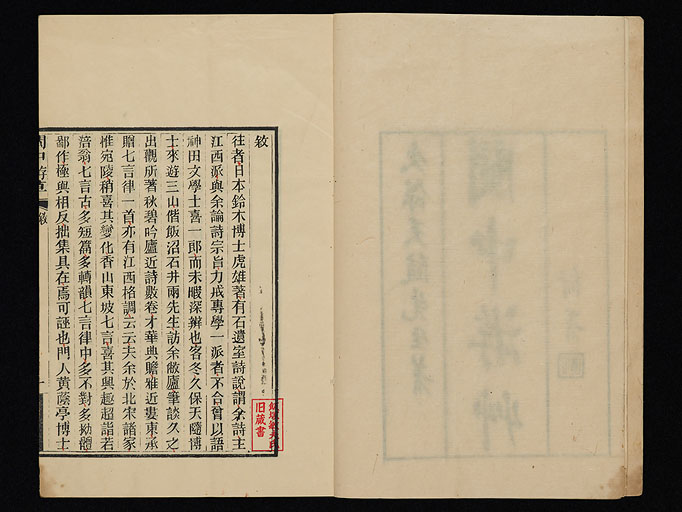 敘
往者日本鈴木博士虎雄著有石遺室詩說謂余詩主
江西派與余論詩宗旨力戒專學一派者不合曾以語
神田文學士喜一郎而未暇深辯也客冬久保天隨博
士來遊三山偕飯沼石井兩先生訪余敝廬筆談久之
出觀所著秋碧吟廬近詩數卷才華典贍雅近婁東承
贈七言律一首亦有江西格調云云夫余於北宋諸家
惟宛陵稍喜其變化香山東坡七言喜其興趣超詣若
涪翁七言古多短篇多轉韻七言律中多不對多拗體
鄙作極與相反拙集具在焉可誣也門人黃蔭亭博士
閩中游草
敘
一
旧蔵書
閩中游草
久保天隨先生著